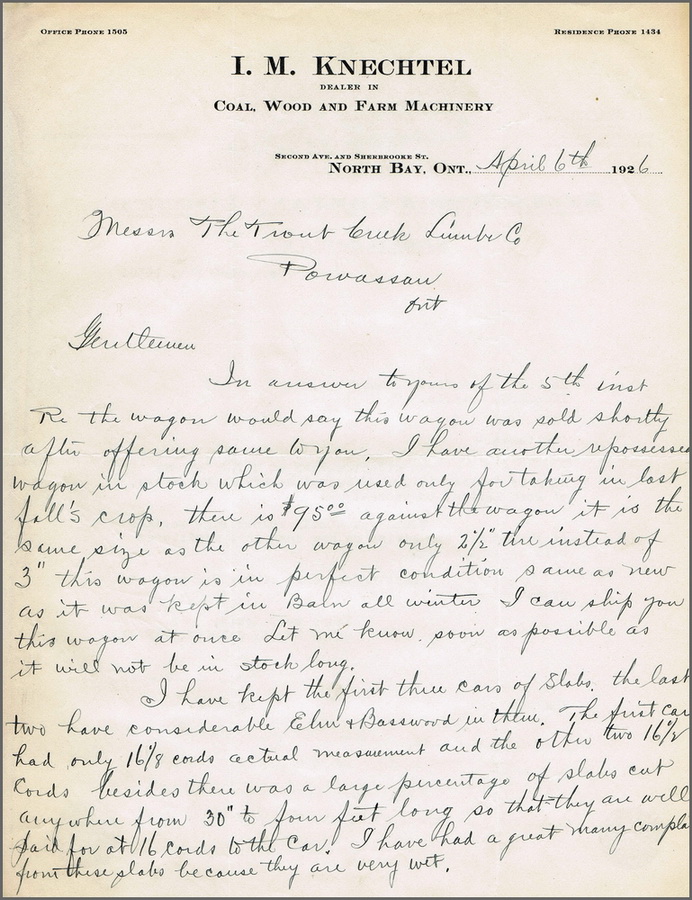 OFFICE PHONE 1505
RESIDENCE PHONE 1434
I. M. KNECHTEL
DEALER IN
COAL, WOOD AND FARM MACHINERY
SECOND AVE. AND SHERBROOKE ST.
NORTH BAY, ONT., April 6th 1926
Messrs The Trout Creek Lumber Co
Powassan
Ont
Gentlemen
In answer to yours of the 5th inst
Re the wagon would say this wagon was sold shortly
after offering same to you, I have another repossesse
wagon in stock which was used only for taking in last
fall's crop, there is $95.00 against the wagon it is the
same size as the other wagon only 2½" tire instead of
3" this wagon is in perfect condition same as new
as it was kept in Barn all winter I can ship you
this wagon at once Let me know soon as possible as
it will not be in stock long.
I have kept the first three cars of Slabs, the last
two have considerable Elm & Basswood in them. The first car
had only 16⅛ cords actual measurement and the other two 16½
Cords besides there was a large percentage of slabs cut
anywhere from 30" to four feet long so that they are well
paid for at 16 cords to the Car. I have had a great many compla
from these slabs because they are very wet.